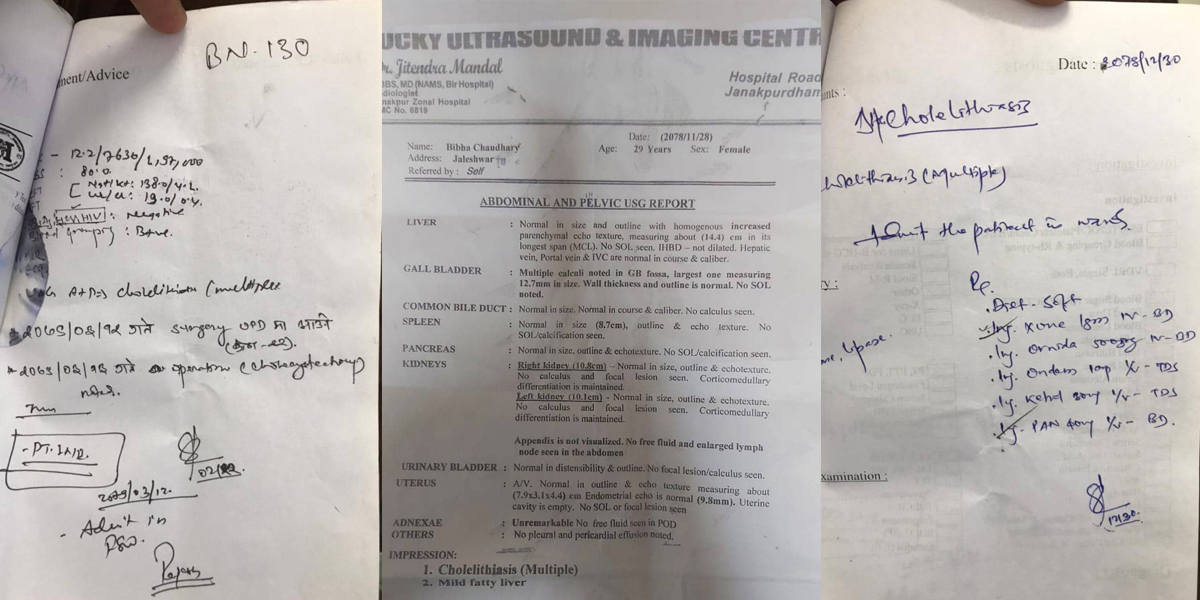 BN-130
ment/Advice
- 12.2/7630/1,97,000
: 80.0
HIV : Negative
: B+ve.
cholelithiasis (multiple
surgery OPD मा आउने
operation (cholecystectomy)
- PT. INR.
2079/03/12.
- Admit in
UCKY ULTRASOUND & IMAGING CENTR
r. Jitendra Mandal
BBS, MD (NAMS, Bir Hospital)
diologist
nakpur Zonal Hospital
MC No. 6819
Hospital Road
Janakpurdham
Date: (2078/11/28)
Name: Bibha Chaudhary Age: 29 Years Sex: Female
Address: Jaleshwar
Referred by : Self
ABDOMINAL AND PELVIC USG REPORT
LIVER : Normal in size and outline with homogenous increased
parenchymal echo texture, measuring about (14.4) cm in its
longest span (MCL). No SOL seen. IHBD – not dilated. Hepatic
vein, Portal vein & IVC are normal in course & caliber.
GALL BLADDER : Multiple calculi noted in GB fossa, largest one measuring
12.7mm in size. Wall thickness and outline is normal. No SOL
noted.
COMMON BILE DUCT : Normal in size. Normal in course & caliber. No calculus seen.
SPLEEN : Normal in size (8.7cm), outline & echo texture. No
SOL/calcification seen.
PANCREAS : Normal in size, outline & echotexture. No SOL/calcification seen.
KIDNEYS : Right kidney (10.8cm) – Normal in size, outline and echotexture.
No calculus and focal lesion seen. Corticomedullary
differentiation is maintained.
Left kidney (10.1cm) - Normal in size, outline and echotexture.
No calculus and focal lesion seen. Corticomedullary
differentiation is maintained.
Appendix is not visualized. No free fluid and enlarged lymph
node seen in the abdomen
URINARY BLADDER : Normal in distensibility & outline. No focal lesion/calculus seen.
UTERUS : A/V. Normal in outline & echo texture measuring about
(7.9x3.1x4.4) cm Endometrial echo is normal (9.8mm). Uterine
cavity is empty. No SOL or focal lesion seen
ADNEXAE : Unremarkable No free fluid seen in POD
OTHERS : No pleural and pericardial effusion noted.
IMPRESSION:
1. Cholelithiasis (Multiple)
2. Mild fatty liver
Date : 2078/12/30
nts :
Cholelithiasis
(Multiple)
Admit the patient in ward.
Rx.
. Diet - soft
. Inj. Xone 1gm IV - BD
. Inj. Ornida 500mg IV - BD
. Inj. Ondem 1amp I/V - TDS
. Inj. Ketrol 30mg I/V - TDS
. Inj. PAN 40mg I/V - BD.
xamination :
12/30.